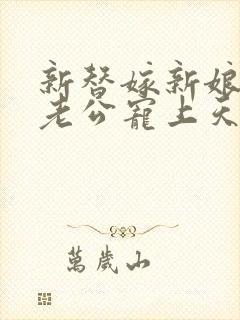 新替嫁新娘
老公寵上天
萬歲山